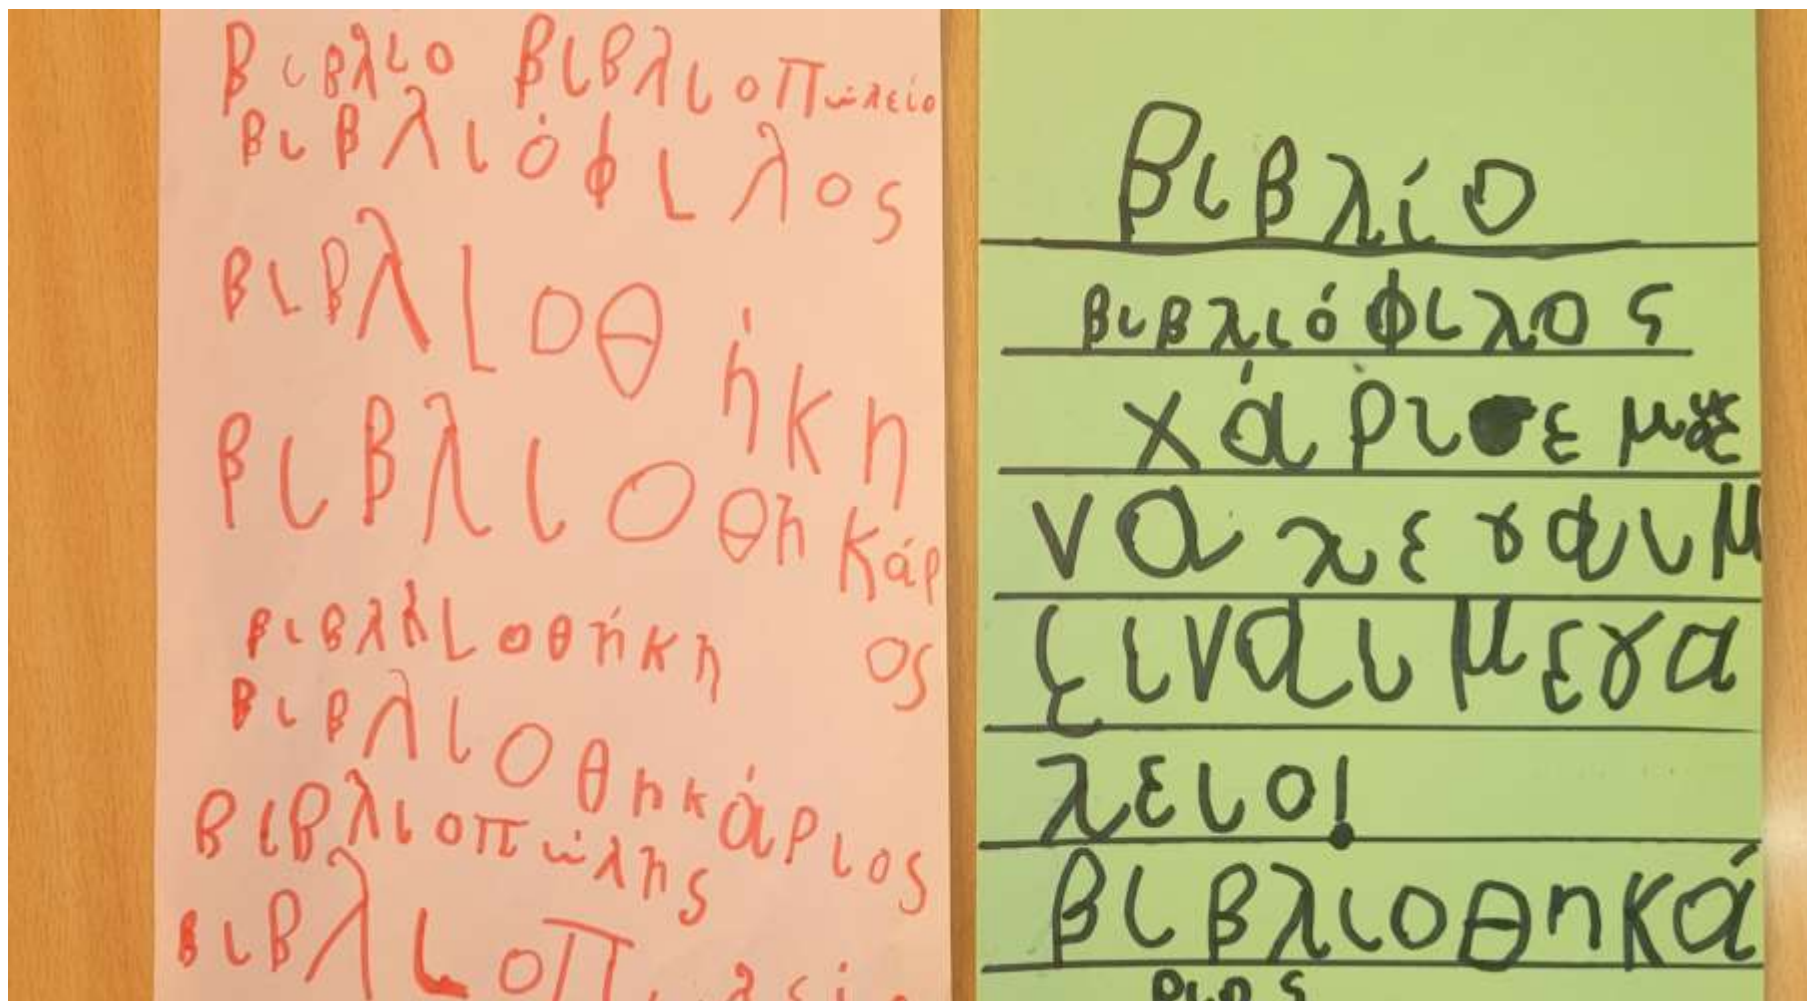 βιβλιο βιβλιοπωλείο
βιβλιόφιλος
βιβλιοθήκη
βιβλιοθηκάρ
ος
βιβλλιοθήκη
βιβλιοθηκάριος
βιβλιοπώλης
βιβλιοπωλείο
βιβλίο
βιβλιόφιλος
χάρισε
να
ξιναι μεγα
λειο!
βιβλιοθηκά
ριος